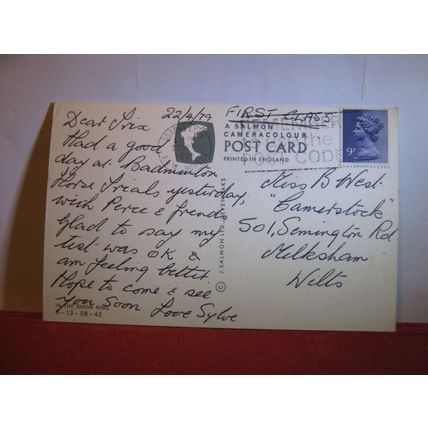 22/4/79
Dear Trix
Had a good
day at Badminton
Horse Trials yesterday,
with Perce & friends
Glad to say my
test was OK &
am feeling better
Hope to come & see
you soon Love Sylve
IN THE SHOW RING
6-13-58-42
© J. SALMON LTD., SEVENOAKS
FIRST CLASS
A SALMON
CAMERACOLOUR
POST CARD
PRINTED IN ENGLAND
REMEMBER
the
CODE
9P
Miss B West
"Camerstock"
501, Semington Rd
Melksham
Wilts